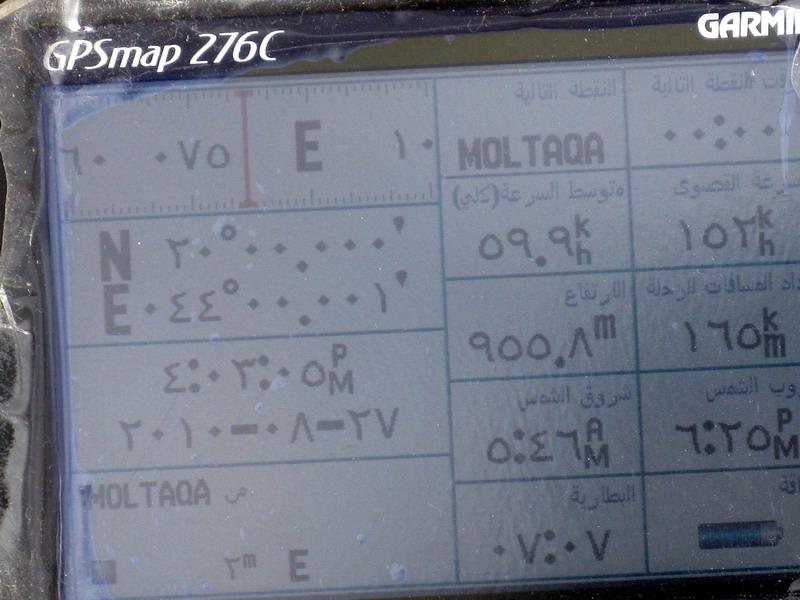 GPSmap 276C
GARMIN
٠٧٥ E ١٠
N ٢٠°٠٠.٠٠٠'
E ٠٤٤°٠٠.٠٠١'
٤:٠٣:٠٥ PM
٢٠١٠-٠٨-٢٧
MOLTAQA من
٢m E
النقطة التالية
MOLTAQA
متوسط السرعة(كلي)
٥٩.٩ kh
الارتفاع
٩٥٥.٨ m
شروق الشمس
٥:٤٦ AM
البطارية
٠٧:٠٧
النقطة التالية
القصوى
١٥٢ kh
المسافات الرحلة
١٦٥ km
الشمس
٦:٢٥ PM